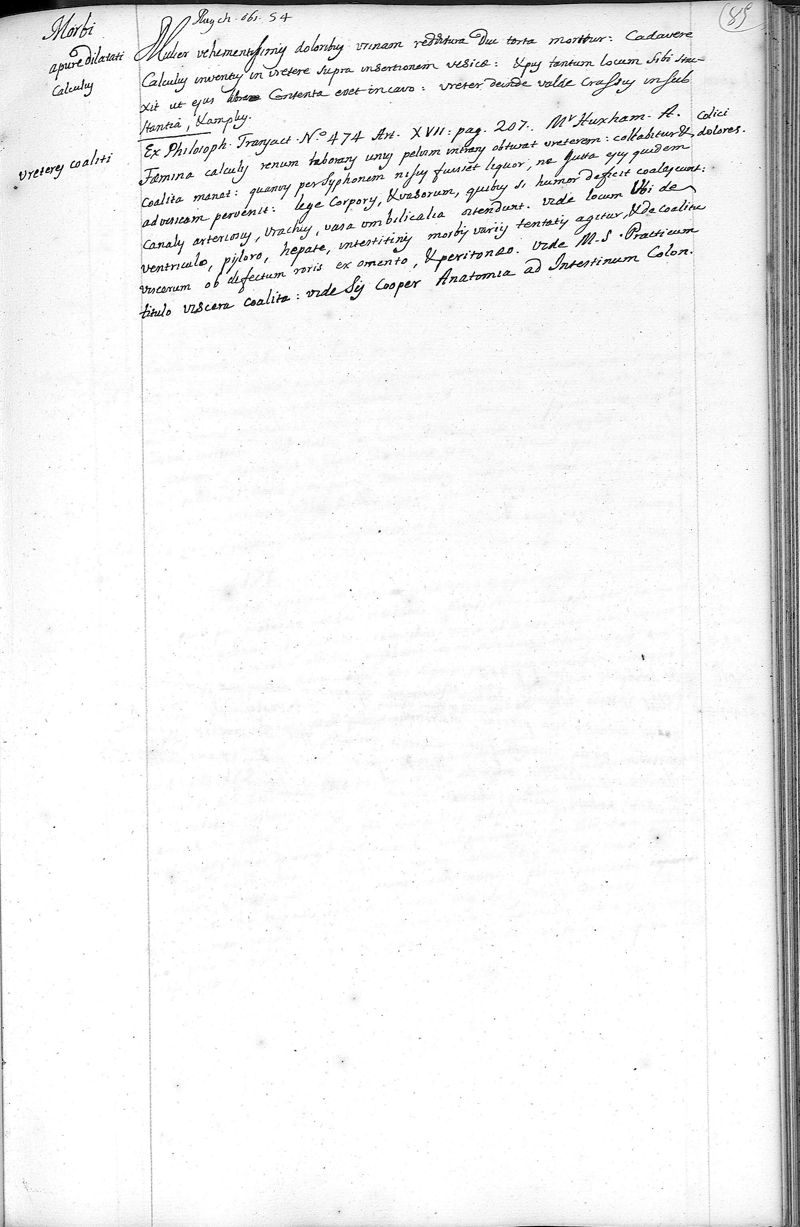 85
Morbi
a pure dilatati
Calculus
Ruysch. obs. 54
Mulier vehementissimis doloribus urinam redditura diu torta moritur: Cadavere
Calculus inventus in uretere supra insertionem vesicæ: &pus tantum locum sibi stru-
xit ut ejus Contenta esset in cavo: ureter deinde valde Crassus in sub
stantiâ, &amplus.
Ex Philosoph. Transact. No. 474 Art. XVII: pag. 207. Mr Huxham. A. Colici
ureteres coaliti
Fæmina calculis renum laborans unus pelvim intrans obturat ureterem: collabitur & dolores.
Coalita manet: quamvis per Syphonem nisus fuisset liquor, ne gutta ejus quidem
ad vesicam pervenit: lege Corporis, &vasorum, quibus si humor deficit coalescunt:
Canalis arteriosus, Urachus, vasa umbilicalia ostendunt. vide locum Ubi de
ventriculo, pyloro, hepate, intestinis morbis variis tentatis agitur, &de Coalitu
viscerum ob defectum roris ex omento, &peritonæo. vide M.S. Practicum
titulo viscera Coalita: vide Sis Cooper Anatomia ad Intestinum Colon.